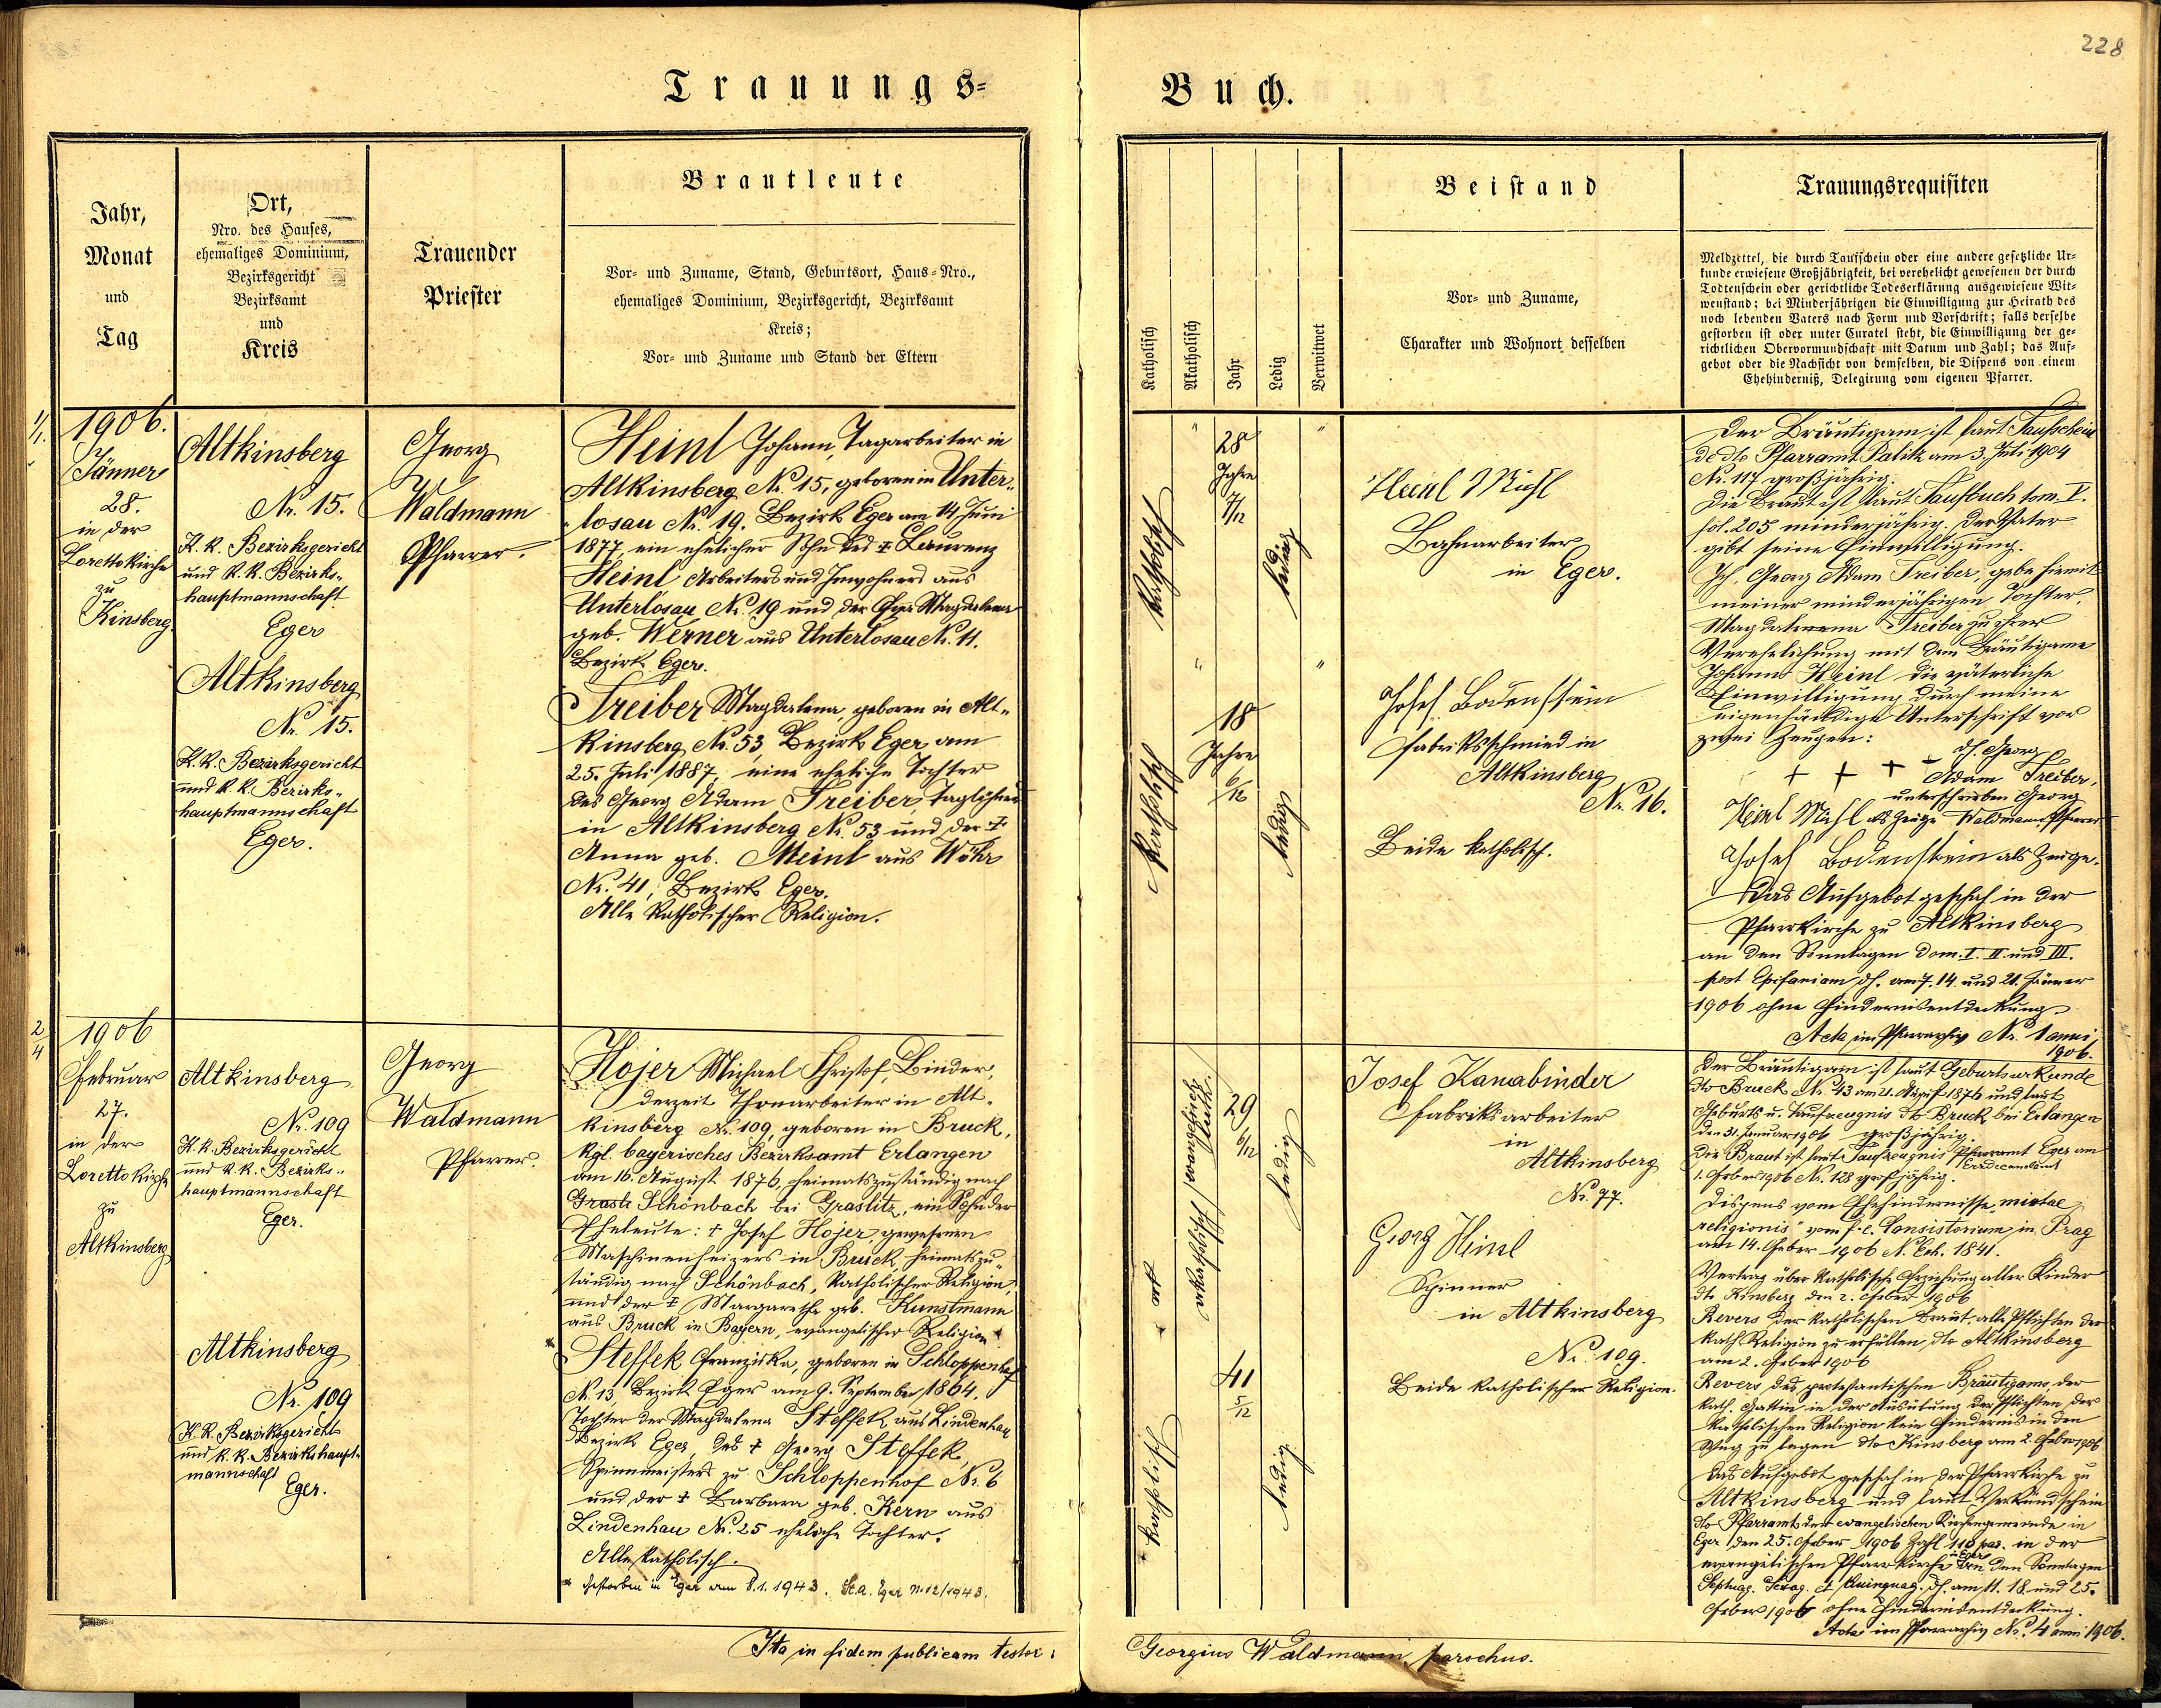 228
Trauungs=
Buch.
Jahr,
Monat
und
Tag
Ort,
Nro. des Hauses,
ehemaliges Dominium,
Bezirksgericht
Bezirksamt
und
Kreis
Trauender
Priester
Brautleute
Vor- und Zuname, Stand, Geburtsort, Haus-Nro.,
ehemaliges Dominium, Bezirksgericht, Bezirksamt
Kreis;
Vor- und Zuname und Stand der Eltern
Katholisch
Akatholisch
Jahr
Ledig
Verwitwet
Beistand
Vor- und Zuname,
Charakter und Wohnort desselben
Trauungsrequisiten
Meldzettel, die durch Taufschein oder eine andere gesetzliche Ur-
kunde erwiesene Großjährigkeit, bei verehelicht gewesenen der durch
Todtenschein oder gerichtliche Todeserklärung ausgewiesene Wit-
wenstand; bei Minderjährigen die Einwilligung zur Heirath des
noch lebenden Vaters nach Form und Vorschrift; falls derselbe
gestorben ist oder unter Curatel steht, die Einwilligung der ge-
richtlichen Obervormundschaft mit Datum und Zahl; das Auf-
gebot oder die Nachsicht von demselben, die Dispens von einem
Ehehinderniß, Delegirung vom eigenen Pfarrer.
1/1.
1906.
Jänner
28.
in der
Lorettokirche
zu
Kinsberg.
Altkinsberg
Nr. 15.
K. K. Bezirksgericht
und K. K. Bezirks-
hauptmannschaft
Eger
Altkinsberg
Nr. 15.
K. K. Bezirksgericht
und K. K. Bezirks-
hauptmannschaft
Eger.
Georg
Waldmann
Pfarrer.
Heinl Johann, Tagarbeiter in
Altkinsberg Nr. 15, geboren in Unter-
losau Nr. 19. Bezirk Eger am 14 Juni
1877, ein ehelicher Sohn des † Laurenz
Heinl Arbeiters und Inwohners aus
Unterlosau Nr. 19 und der Eva Magdalena
geb. Werner aus Unterlosau Nr. 11.
Bezirk Eger.
Treiber Magdalena, geboren in Alt-
kinsberg Nr. 53, Bezirk Eger am
25. Juli 1887, eine eheliche Tochter
des Georg Adam Treiber, Taglöhners
in Altkinsberg Nr. 53 und der †
Anna geb. Meinl aus Wöhr
Nr. 41, Bezirk Eger.
Alle katholischer Religion.
katholisch
28
Jahre
7/12
ledig
katholisch
18
Jahre
6/12
ledig
Heinl Michl
Bahnarbeiter
in Eger.
Josef Bodenstein
Fabriksschmied in
Altkinsberg
Nr. 16.
Beide katholisch.
Der Bräutigam ist laut Taufschein
de dto Pfarramt Palitz am 3. Juli 1904
Nr. 117 großjährig.
Die Braut ist laut Taufbuch tom. V.
fol. 205 minderjährig. Der Vater
gibt seine Einwilligung.
Ich, Georg Adam Treiber, gebe hiemit
meiner minderjährigen Tochter,
Magdalena Treiber zu ihrer
Verehelichung mit dem Bräutigame
Johann Heinl die väterliche
Einwilligung durch meine
eigenhändige Unterschrift vor
zwei Zeugen:
+ + + dh. Georg
Adam Treiber,
unterschrieben Georg
Heinl Michl als Zeuge Waldmann, Pfarrer
Josef Bodenstein als Zeuge.
Das Aufgebot geschah in der
Pfarrkirche zu Altkinsberg
an den Sonntagen Dom. I. II und III.
post Epifaniam dh. am 7. 14. und 21. Jänner
1906 ohne Hindernisentdeckung.
Acta im Pfarrarchiv Nr. 1 anni
1906.
2/4
1906
Februar
27.
in der
Lorettokirche
zu
Altkinsberg
Altkinsberg
Nr. 109
K. K. Bezirksgericht
und K. K. Bezirks-
hauptmannschaft
Eger.
Altkinsberg
Nr. 109
K. K. Bezirksgericht
und K. K. Bezirkshaupt-
mannschaft
Eger.
Georg
Waldmann
Pfarrer.
Hojer Michael Christof, Binder,
derzeit Thonarbeiter in Alt-
kinsberg Nr. 109, geboren in Bruck,
kgl. bayerisches Bezirksamt Erlangen
am 16. August 1876, heimatszuständig nach
Schönbach bei Graslitz, ein Sohn der
Eheleute: † Josef Hojer, gewesenen
Maschinenheizers in Bruck, heimatszu-
ständig nach Schönbach, katholischer Religion,
und der † Margaretha geb. Kunstmann
aus Bruck in Bayern, evangelischer Religion
* Steffek Franziska, geboren in Schloppenhof
Nr. 13, Bezirk Eger am 9. September 1864.
Tochter der Magdalena Steffek aus Lindenhau
Bezirk Eger, des † Georg Steffek
Spinnmeisters zu Schloppenhof Nr. 6
und der † Barbara geb. Kern aus
Lindenhau Nr. 25 eheliche Tochter.
Alle katholisch.
* Gestorben in Eger am 8.1.1943. St.a. Eger Nr. 12/1943.
akatholisch
29
6/12
ledig
katholisch
41
5/12
ledig
Josef Kanabinder
Fabriksarbeiter
in
Altkinsberg
Nr. 77.
Georg Heinl
Spinner
in Altkinsberg
Nr. 109.
Beide katholischer Religion.
Der Bräutigam ist laut Geburtsurkunde
dto Bruck Nr. 43 am 21. August 1876 und laut
Geburts u. Taufzeugnis dto Bruck bei Erlangen
den 31. Januar 1906 großjährig.
Die Braut ist laut Taufzeugnis Pfarramt Eger am
1. Feber 1906 Nr. 128 großjährig.
Dispens vom Ehehindernisse "mixtae
religionis" vom f. e. Consistorium in Prag
am 14. Feber 1906 N. Exh. 1841.
Vertrag über katholische Erziehung aller Kinder
dto Kinsberg den 2. Feber 1906
Revers der katholischen Braut, alle Pflichten der
kath. Religion zu erfüllen dto Altkinsberg
am 2. Feber 1906
Revers des protestantischen Bräutigams, der
kath. Gattin in der Ausübung der Pflichten der
katholischen Religion kein Hindernis in den
Weg zu legen dto Kinsberg am 2. Feber 1906
Das Aufgebot geschah in der Pfarrkirche zu
Altkinsberg und laut Verkündschein
dto Pfarramt der evangelischen Kirchengemeinde in
Eger den 25. Feber 1906 Zahl 118 in der
evangelischen Pfarrkirche in Eger den Sonntagen
Septuag. Sexag. et Quinquag. dh. am 11. 18. und 25.
Feber 1906 ohne Hindernisentdeckung.
Acta im Pfarrarchiv Nr. 4 anni 1906.
Ita in fidem publicam testor:
Georgius Waldmann, parochus.